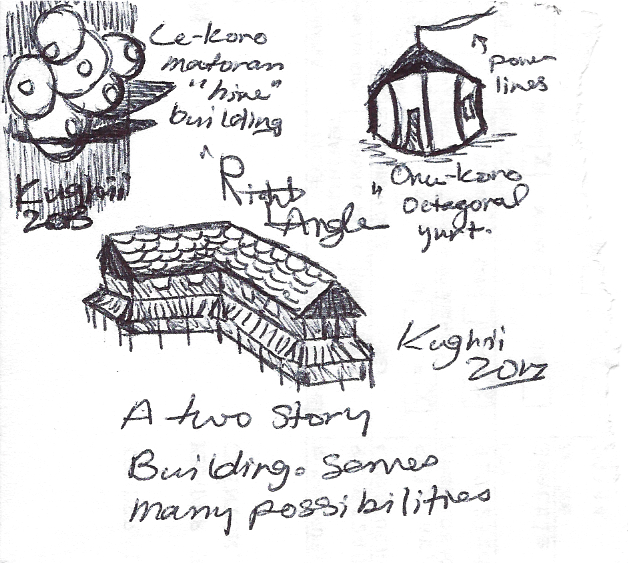 Le-Koro
matoran
"hive"
building
Kughii
2013
power
lines
Onu-Koro
Octagonal
yurt.
"Right
Angle"
Kughii
2012
A two story
Building. Serves
many possibilities